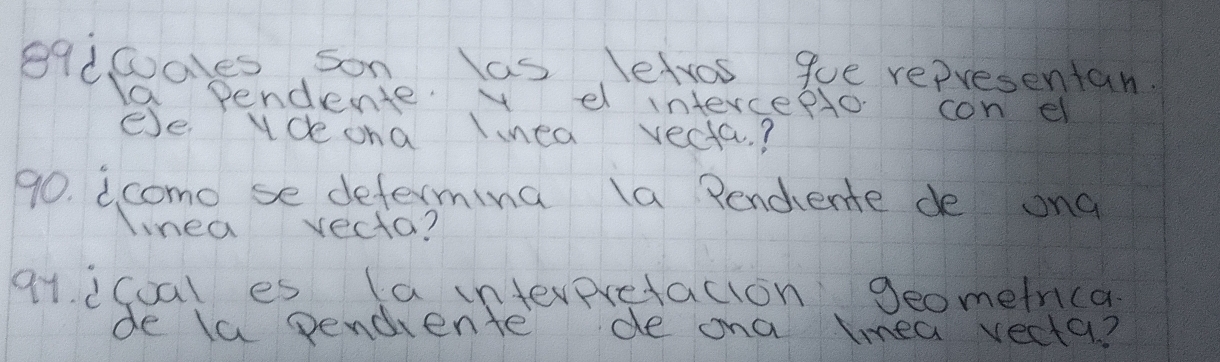 89¿Cuales son las letras que representan.
la Pendente. y el intercepto. con el
eje y de una linea recta.?
90. ¿como se determina la Pendiente de una
linea recta?
91. ¿Cual es la interpretación geometrica.
de la pendiente de una linea recta?